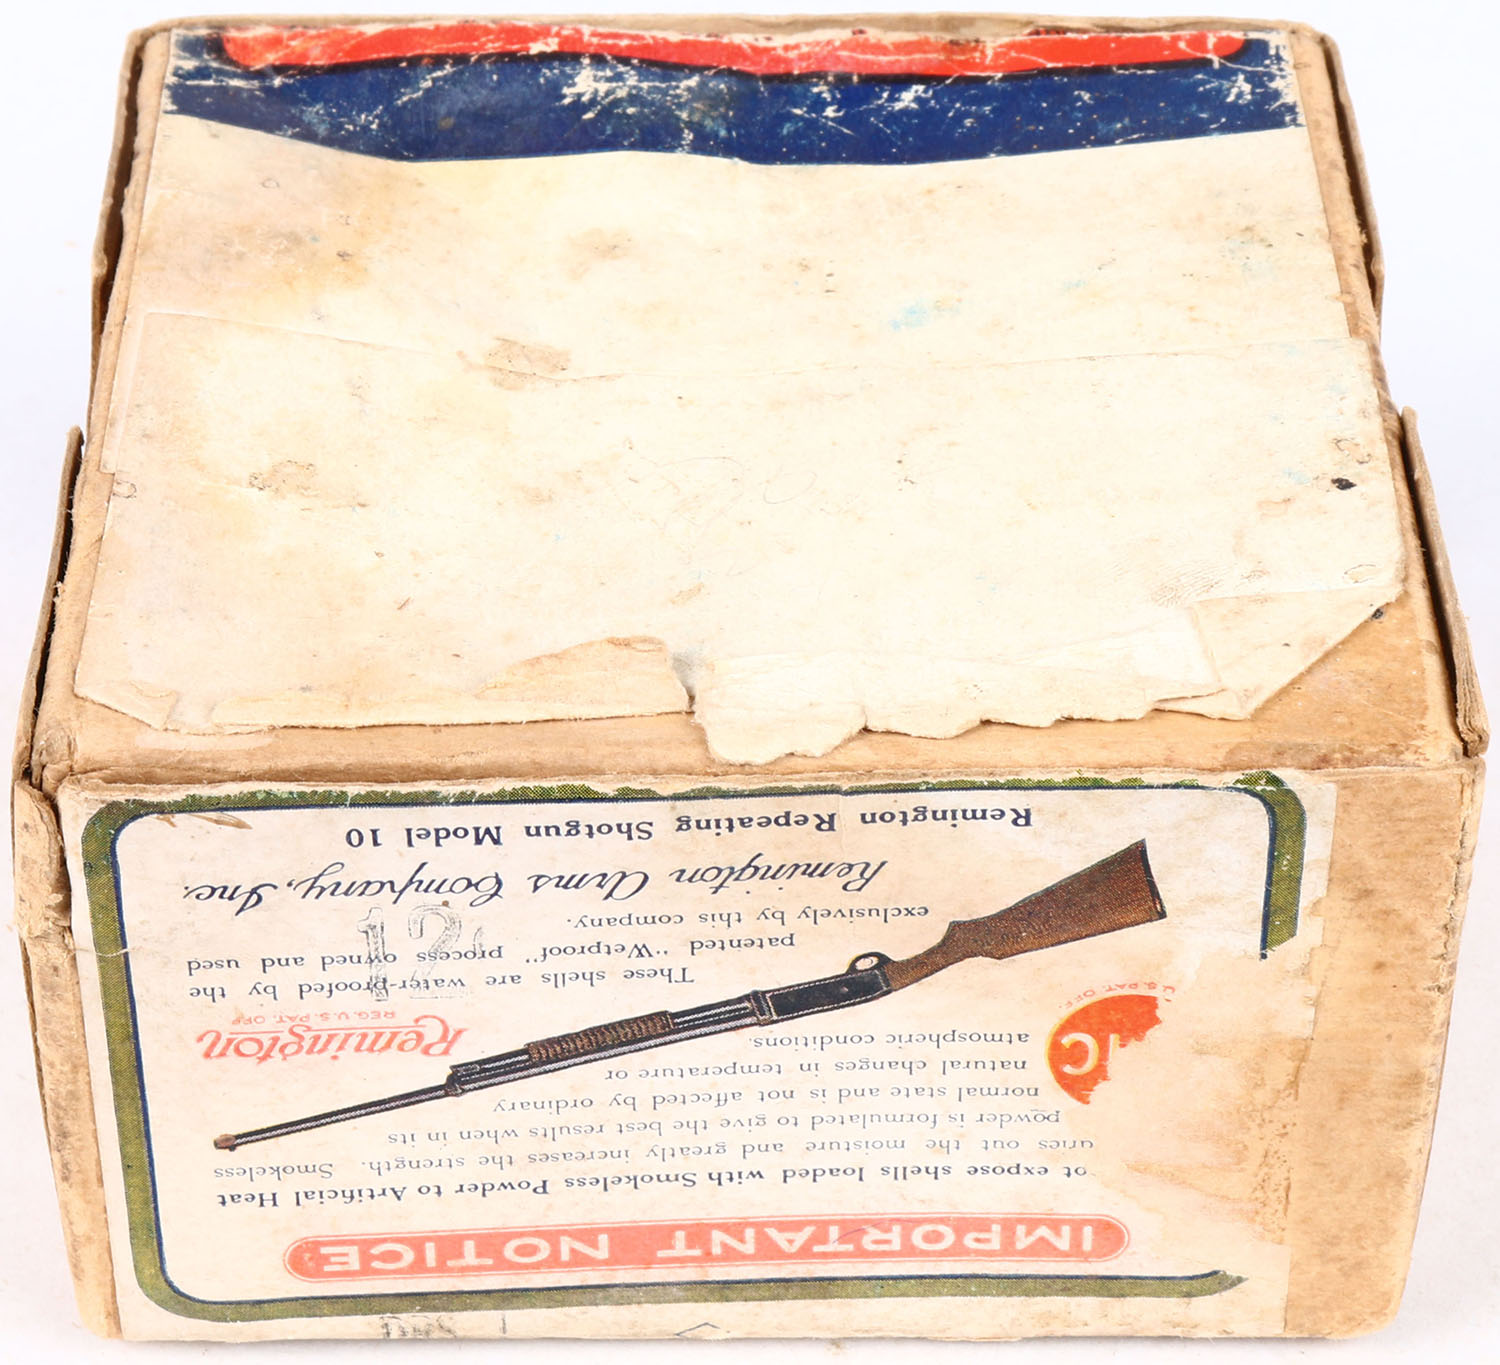 IMPORTANT NOTICE
ot expose shells loaded with Smokeless Powder to Artificial Heat
uries out the moisture and greatly increases the strength. Smokeless
powder is formulated to give the best results when in its
normal state and is not affected by ordinary
natural changes in temperature or
atmospheric conditions.
IC
U.S. PAT. OFF.
Remington
REG. U.S. PAT. OFF.
These shells are water-proofed by the
patented "Wetproof" process owned and used
exclusively by this company.
12
Remington Arms Company, Inc.
Remington Repeating Shotgun Model 10